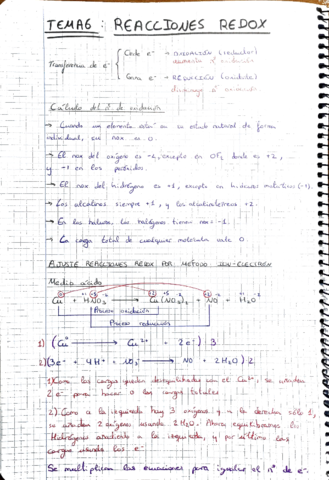 TEMA6: REACCIONES REDOX
Transferencia de e⁻
Cede e⁻ → OXIDACIÓN (reductor)
aumenta nº oxidación
Gana e⁻ → REDUCCIÓN (oxidante)
disminuye nº oxidación
Cálculo del nº de oxidación
→ Cuando un elemento está en su estado natural de forma
individual, su nox es 0.
→ El nox del oxígeno es -2, excepto en OF₂ donde es +2,
y -1 en los peróxidos.
→ El nox del hidrógeno es +1, excepto en hidruros metálicos (-1)
→ Los alcalinos siempre +1, y los alcalinotérreos +2.
→ En los haluros, los halógenos tienen nox -1.
→ La carga total de cualquier molécula vale 0.
AJUSTE REACCIONES REDOX POR MÉTODO ION-ELECTRÓN
Medio ácido
Cu + HNO₃ → Cu(NO₃)₂ + NO + H₂O
Proceso oxidación
Proceso reducción
1) (Cu → Cu²⁺ + 2e⁻) 3
2) (3e⁻ + 4H⁺ + NO₃⁻ → NO + 2H₂O) 2
1) Como las cargas quedan desequilibradas con el Cu²⁺, se añaden
2 e⁻ para hacer 0 las cargas totales
2) Como a la izquierda hay 3 oxígenos y a la derecha sólo 1,
se añaden 2 oxígenos usando 2H₂O. Ahora equilibramos los
hidrógenos añadiendo a la izquierda, y por último las
cargas usando los e⁻
Se multiplican las ecuaciones para igualar el nº de e⁻.